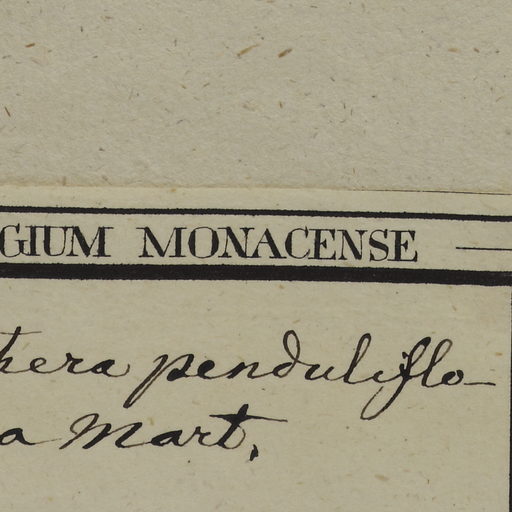 GIUM MONACENSE
thera penduliflo-
a Mart.